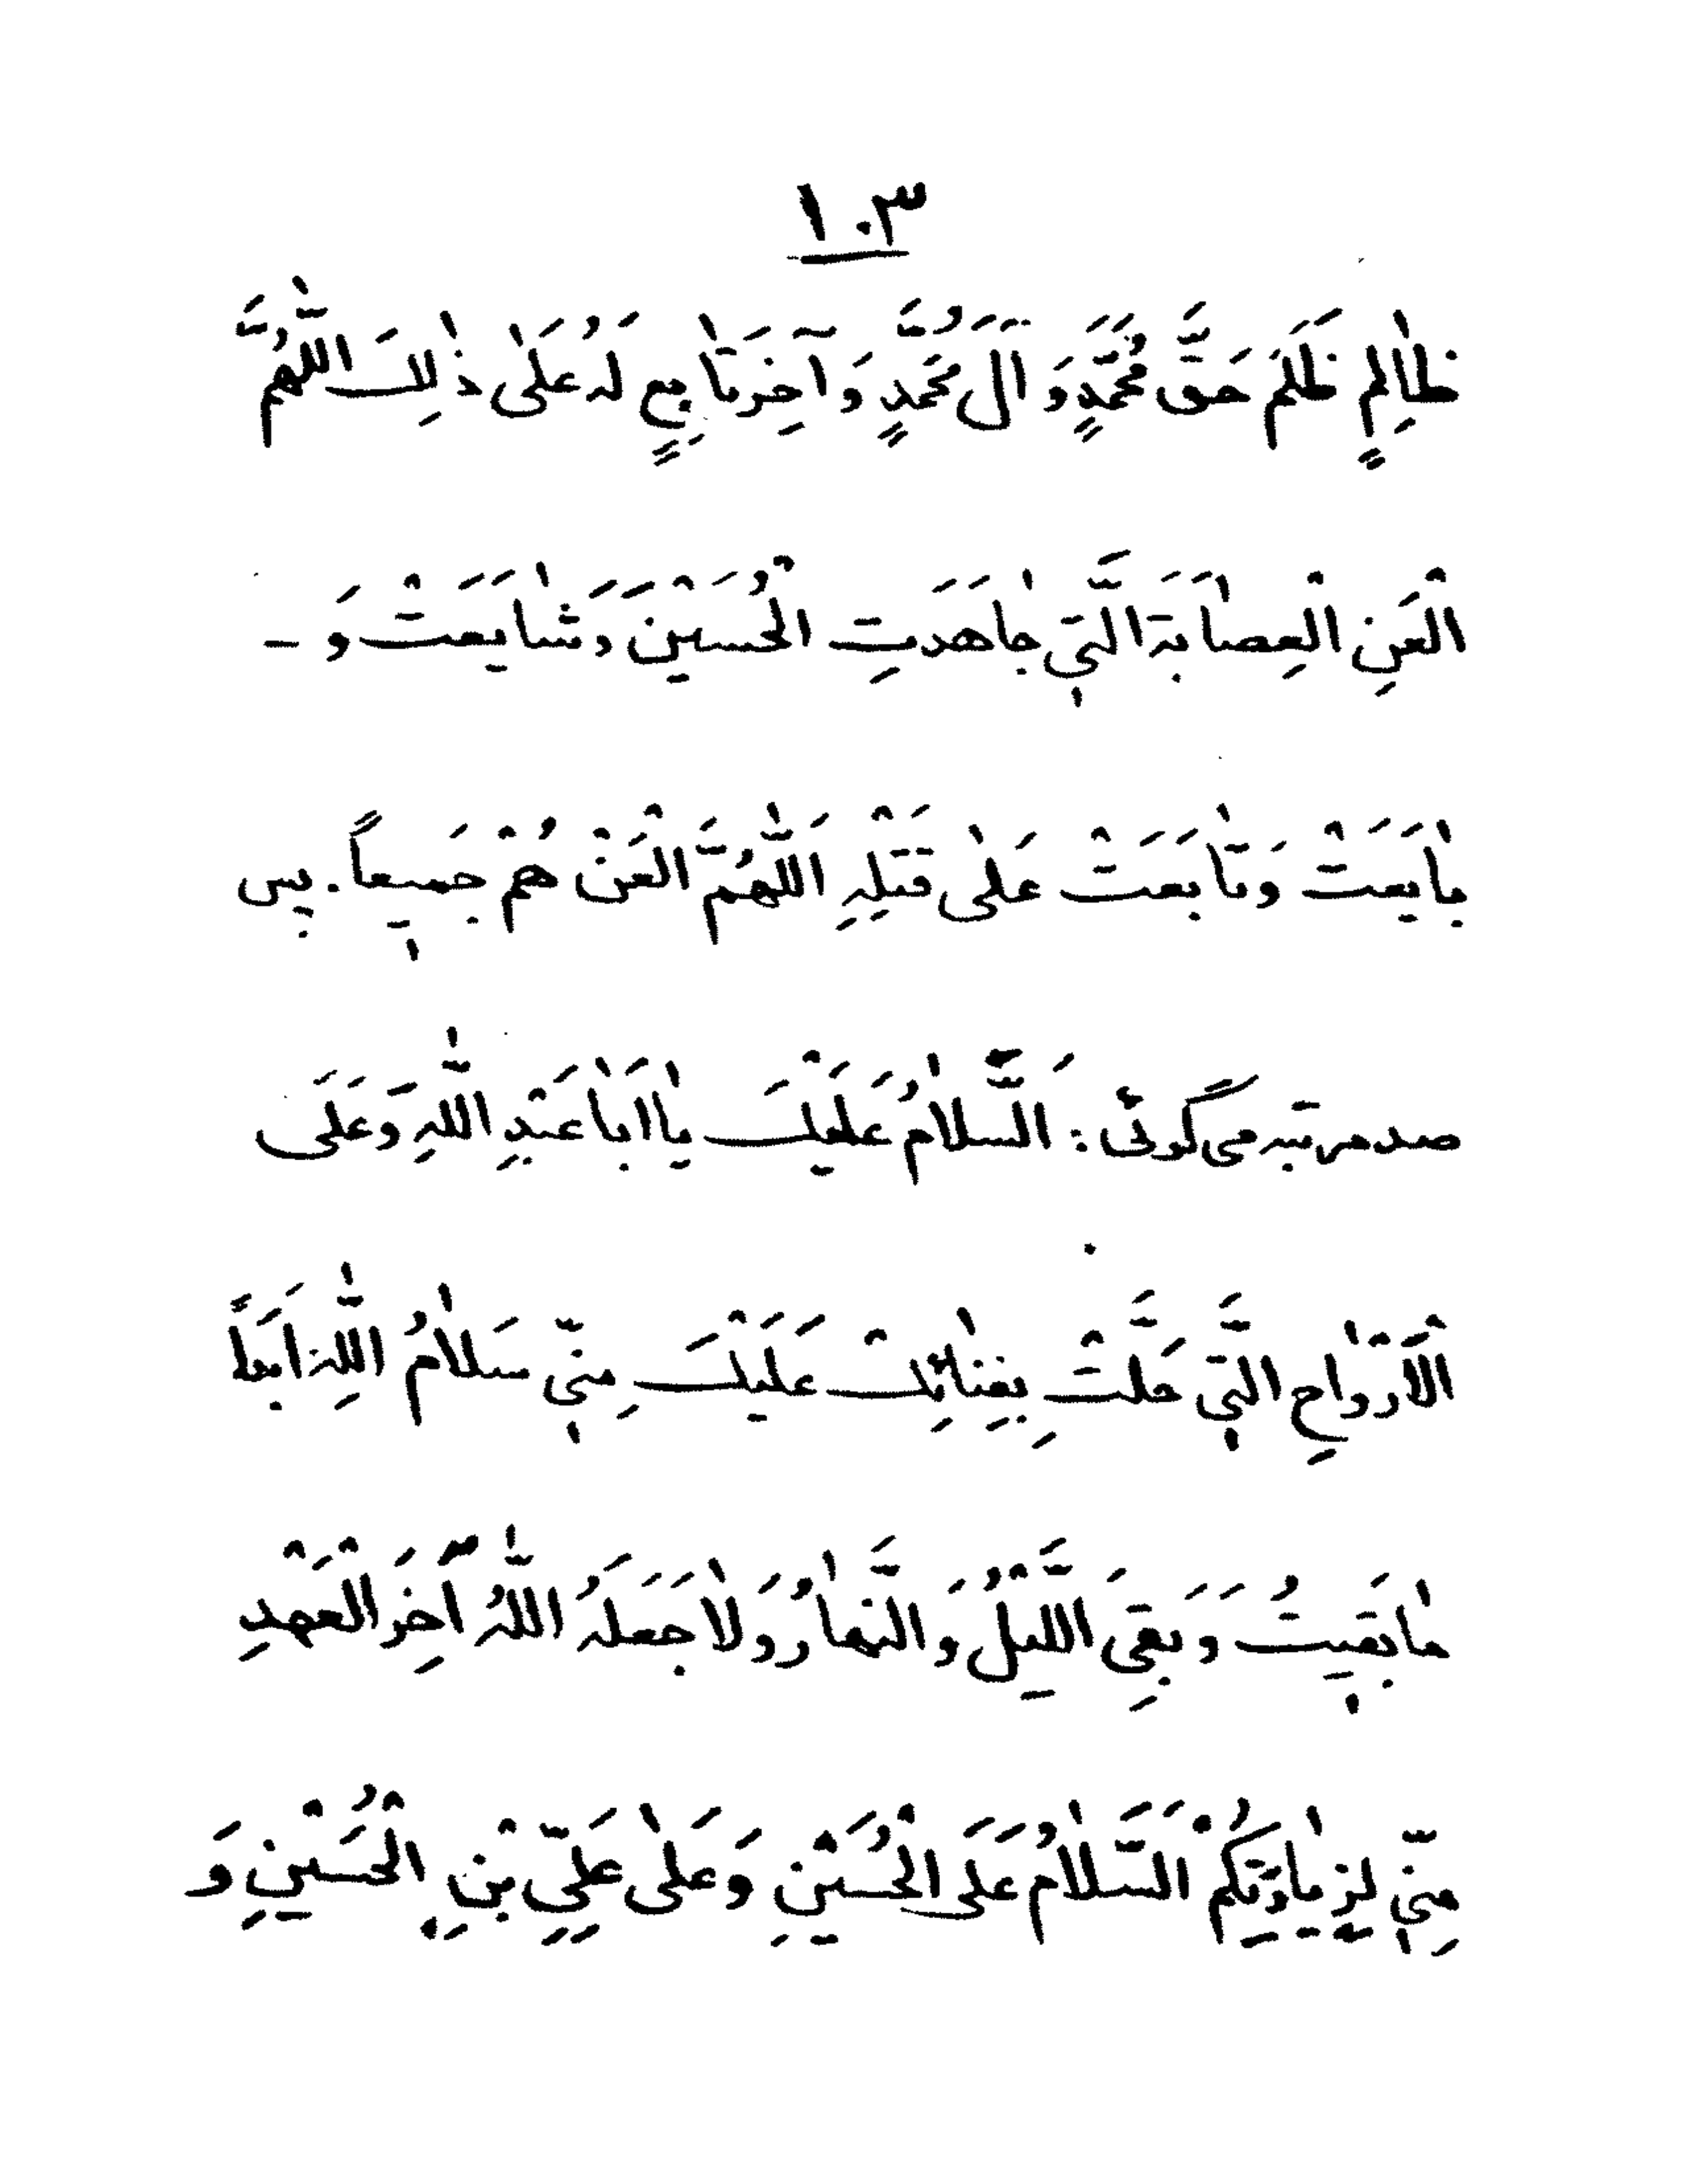 ١٠٣
ظٰالِمٍ ظَلَمَ حَقَّ مُحَمَّدٍ وَ آلَ مُحَمَّدٍ وَ آخِرَ تٰابِعٍ لَهُ عَلىٰ ذٰلِكَ اللّٰهُمَّ
الْعَنِ الْعِصٰابَةَ الَّتِي جٰاهَدَتِ الْحُسَيْنَ وَ شٰايَعَتْ وَ -
بٰايَعَتْ وَ تٰابَعَتْ عَلىٰ قَتْلِهِ اَللّٰهُمَّ الْعَنْ هُمْ جَمِيعاً. پس
صد مرتبه می گوئی: اَلسَّلاٰمُ عَلَيْكَ يٰا اَبٰا عَبْدِ اللّٰهِ وَ عَلَى
الْاَرْوٰاحِ الَّتِي حَلَّتْ بِفِنٰائِكَ عَلَيْكَ مِنِّي سَلاٰمُ اللّٰهِ اَبَداً
مٰا بَقِيتُ وَ بَقِيَ اللَّيْلُ وَ النَّهٰارُ وَ لاٰ جَعَلَهُ اللّٰهُ آخِرَ الْعَهْدِ
مِنّي لِزِيٰارَتِكُمْ اَلسَّلاٰمُ عَلَى الْحُسَيْنِ وَ عَلىٰ عَلِيِّ بْنِ الْحُسَيْنِ وَ